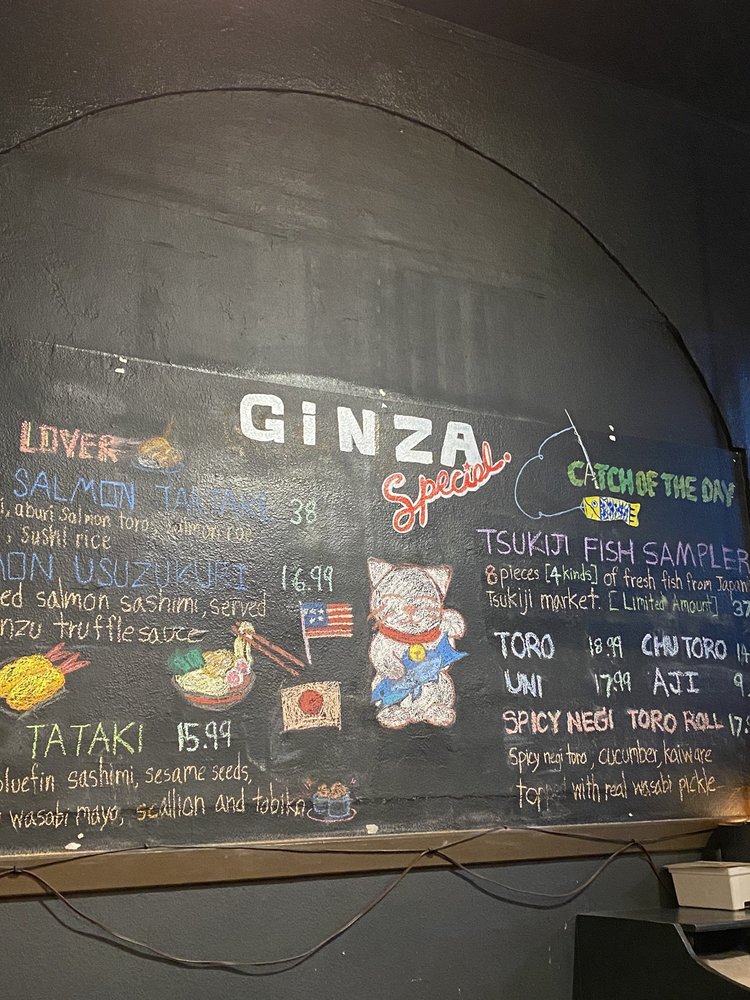 GiNZA
Special.
LOVER
SALMON TARTARE 38
i, aburi salmon toro, salmon roe
, sushi rice
MON USUZUKURI 16.99
ed salmon sashimi, served
nzu truffle sauce
TATAKI 15.99
bluefin sashimi, sesame seeds,
wasabi mayo, scallion and tobiko
CATCH OF THE DAY
TSUKIJI FISH SAMPLER
8 pieces [4 kinds] of fresh fish from Japan
Tsukiji market. [Limited Amount] 37
TORO 18.99 CHUTORO 14
UNI 17.99 AJI 9
SPICY NEGI TORO ROLL 17.
Spicy negi toro, cucumber, kaiware
topped with real wasabi pickle